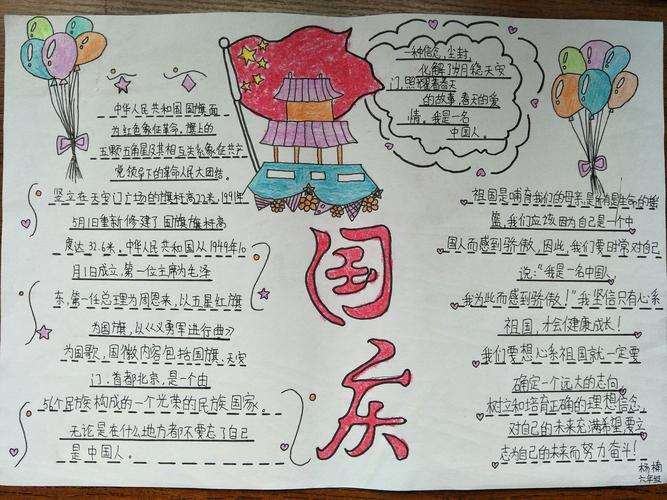 中华人民共和国国旗面
为红色象征革命。旗上的
五颗五角星及其相互关系象征共产
党领导下的革命人民大团结。
坚立在天安门广场的旗杆高22米,1991年
5月1日重新修建了国旗旗杆高
度达32.6米。中华人民共和国从1949年10
月1日成立,第一位主席为毛泽
东,第一任总理为周恩来,以五星红旗
为国旗,以《义勇军进行曲》
为国歌,国徽内容包括国旗、天安
门.首都北京,是一个由
56个民族构成的一个光荣的民族国家。
无论是在什么地方都不要忘了自己
是中国人。
国庆
一种信念,尘封,
化解了岁月稳天安
门,照耀着春天
的故事.春天的爱
情。我是一名
中国人。
祖国是哺育我们的母亲,是所有是生命的摇
篮,我们应该因为自己是一个中
国人而感到骄傲,因此,我们要时常对自己
说:“我是一名中国人,
我为此而感到骄傲!”我坚信只有心系
祖国,才会健康成长!
我们要想心系祖国就一定要
确定一个远大的志向,
树立和培育正确的理想信念,
对自己的未来充满希望要立
志为自己的未来而努力奋斗!
杨楠
六年级